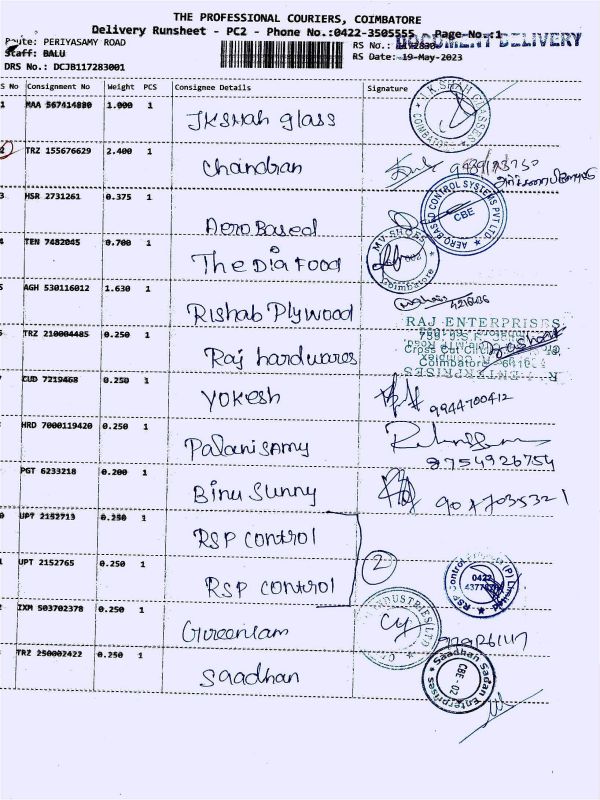 THE PROFESSIONAL COURIERS, COIMBATORE
Delivery Runsheet - PC2 - Phone No.:0422-3505555 Page No.:1
Route: PERIYASAMY ROAD
RS No.:
DOCUMENT DELIVERY
Staff: BALU
RS Date: 19-May-2023
DRS No.: DCJB117283001
S No Consignment No Weight PCS Consignee Details Signature
1 MAA 567414880 1.000 1 JKShah glass
J.K.SHAH GLASSES COIMBATORE
2 TRZ 155676629 2.400 1 Chandran
3 HSR 2731261 0.375 1 Aero Based
AERO BASED CONTROL SYSTEMS PVT LTD. CBE
4 TEN 7482045 0.700 1 The Dia Food
MV SHOES Coimbatore
5 AGH 530116012 1.630 1 Rishab Plywood
TRZ 210004485 0.250 1 Raj hardwares
RAJ ENTERPRISES
Cross Cut
Coimbatore
CUD 7219468 0.250 1 Yokesh
9944700412
HRD 7000119420 0.250 1 Palanisamy
8754926754
PGT 6233218 0.200 1 Binu Sunny
UPT 2152713 0.250 1 RSP control
2
UPT 2152765 0.250 1 RSP control
RSP Control (P) Limited 0422
IXM 503702378 0.250 1 Greenlam
INDUSTRIES LTD
TRZ 250002422 0.250 1 Saadhan
Saadhan Sadan Enterprises CBE - 02